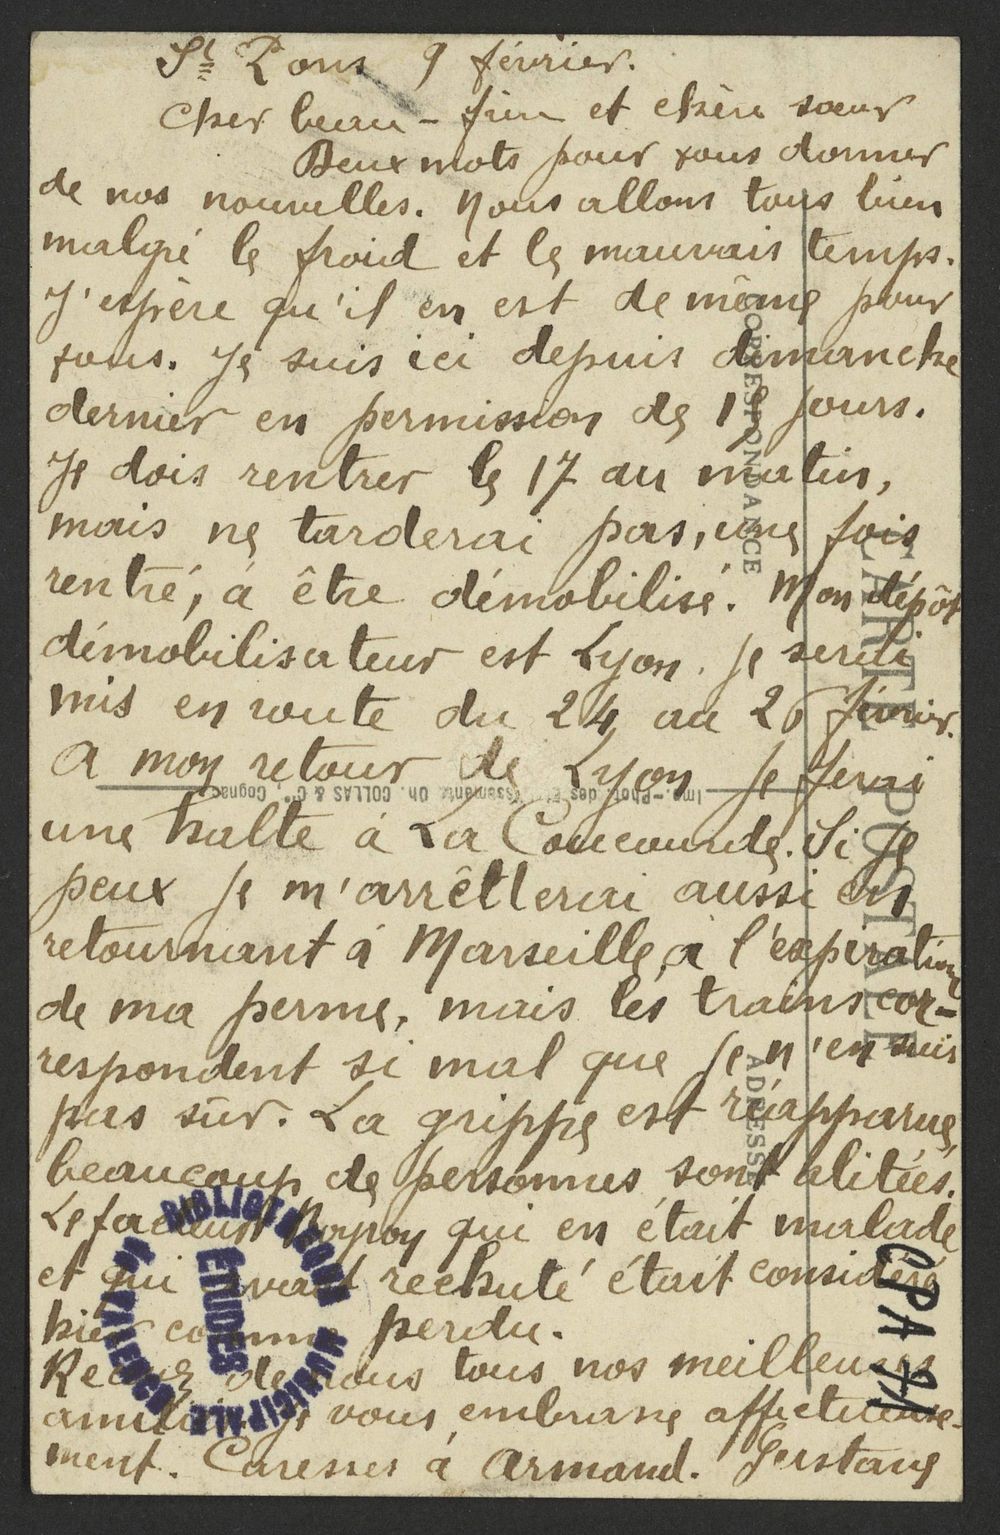 St Pons 9 février.
Cher beau-frère et chère sœur
Deux mots pour vous donner
de nos nouvelles. Nous allons tous bien
malgré le froid et le mauvais temps.
J'espère qu'il en est de même pour
vous. Je suis ici depuis dimanche
dernier en permission de jours.
Je dois rentrer le 17 au matin,
mais ne tarderai pas, une fois
rentré, à être démobilisé. Mon dépôt
démobilisateur est Lyon. Je serai
mis en route du 24 au 26 février.
A mon retour de Lyon je ferai
une halte à La Coucourde. Si je
peux je m'arrêtterai aussi en
retournant à Marseille, à l'expiration
de ma perme, mais les trains cor-
respondent si mal que je n'en suis
pas sûr. La grippe est réapparue,
beaucoup de personnes sont alitées.
Le facteur qui en était malade
et qui avait rechuté était considéré
hier comme perdu.
Recevez de nous tous nos meilleures
amitiés. Je vous embrasse affectueuse-
ment. Caresses à Armand. Gustave
CORRESPONDANCE
CARTE POSTALE
ADRESSE
Imp.-Phot. des Etablissements Ch. COLLAS & Cie, Cognac
BIBLIOTHEQUE MUNICIPALE DE VALENCE
ETUDES
CPA 71